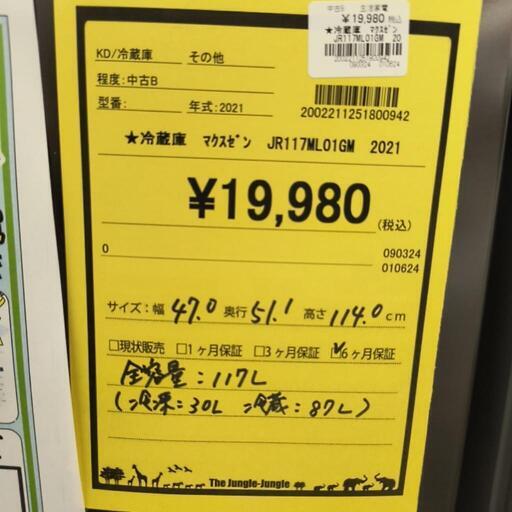 中古B 生活家電
¥19,980 税込
★冷蔵庫 マクスゼン
JR117ML01GM 20
2002211251800942
090324 010624
KD/冷蔵庫 その他
程度:中古B
型番: 年式:2021
2002211251800942
★冷蔵庫 マクスゼン JR117ML01GM 2021
¥19,980
(税込)
0
090324
010624
サイズ:幅 47.0 奥行 51.1 高さ 114.0 cm
□現状販売 □1ヶ月保証 □3ヶ月保証 ☑6ヶ月保証
全容量:117L
(冷凍:30L 冷蔵:87L)
The Jungle-Jungle